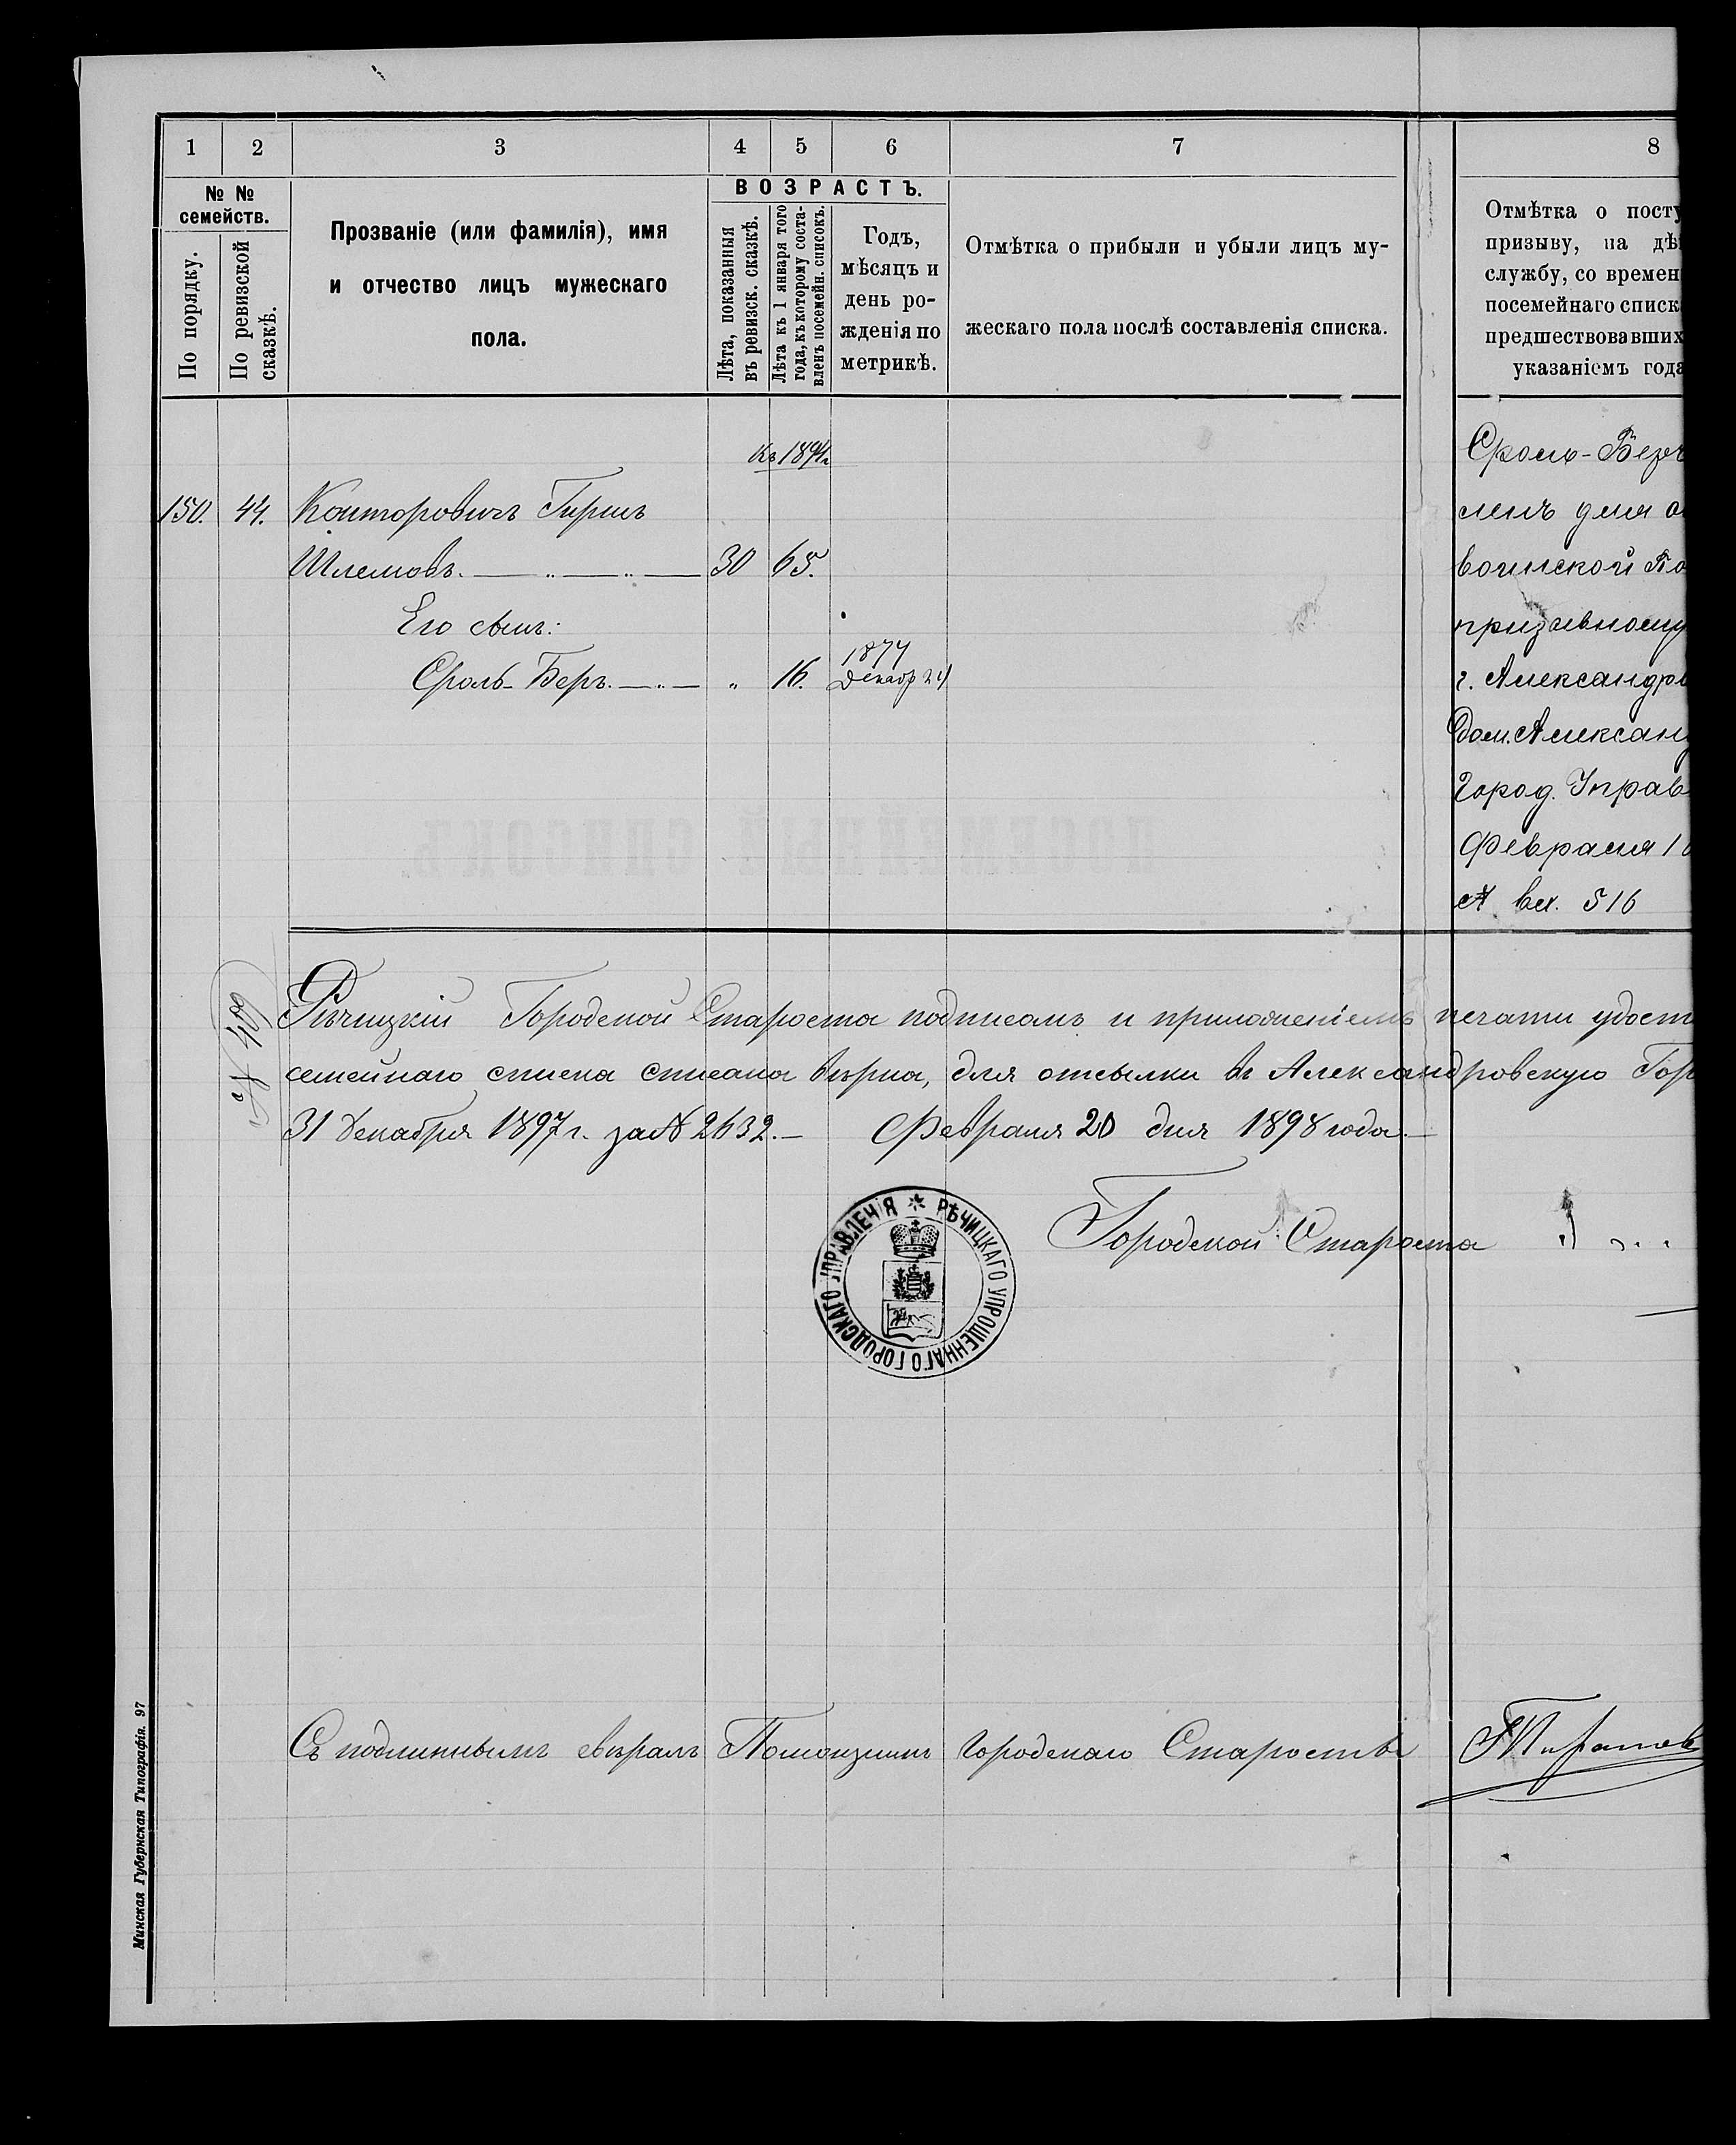 1 2 3 4 5 6 7 8
№ № семействъ.
По порядку.
По ревизской сказкѣ.
Прозваніе (или фамилія), имя
и отчество лицъ мужескаго
пола.
ВОЗРАСТЪ.
Лѣта, показанныя
въ ревизск. сказкѣ.
Лѣта къ 1 января того
года, къ которому соста-
вленъ посемейн. списокъ.
Годъ,
мѣсяцъ и
день ро-
жденія по
метрикѣ.
Отмѣтка о прибыли и убыли лицъ му-
жескаго пола послѣ составленія списка.
Отмѣтка о посту
призыву, на дѣ
службу, со времен
посемейнаго списк
предшествовавших
указаніемъ года
Къ 1891г.
150. 44. Канторовичъ Гиршъ
Шлемовъ. 30 65.
Его сынъ:
Сроль-Беръ. „ 16. 1874
Декабр 24
Сроль-Беръ
сленъ для о
воинской По
призывному
г. Александро
дом. Алексан
Город. Управ
Февраля 18
№ вх. 516
№ 409
Рѣчицкій Городской Староста подписомъ и приложеніемъ печати удост
семейнаго списка списана вѣрна, для отсылки въ Александровскую Гор
31 декабря 1897 г. за № 2632.— Февраля 20 дня 1898 года.—
Городской Староста
РѢЧИЦКАГО УПРОЩЕННАГО ГОРОДСКАГО УПРАВЛЕНІЯ
Съ подлиннымъ свѣрялъ Помощникъ Городскаго Старосты
Минская Губернская Типографія. 97
ПОСЕМЕЙНЫЙ СПИСОКЪ